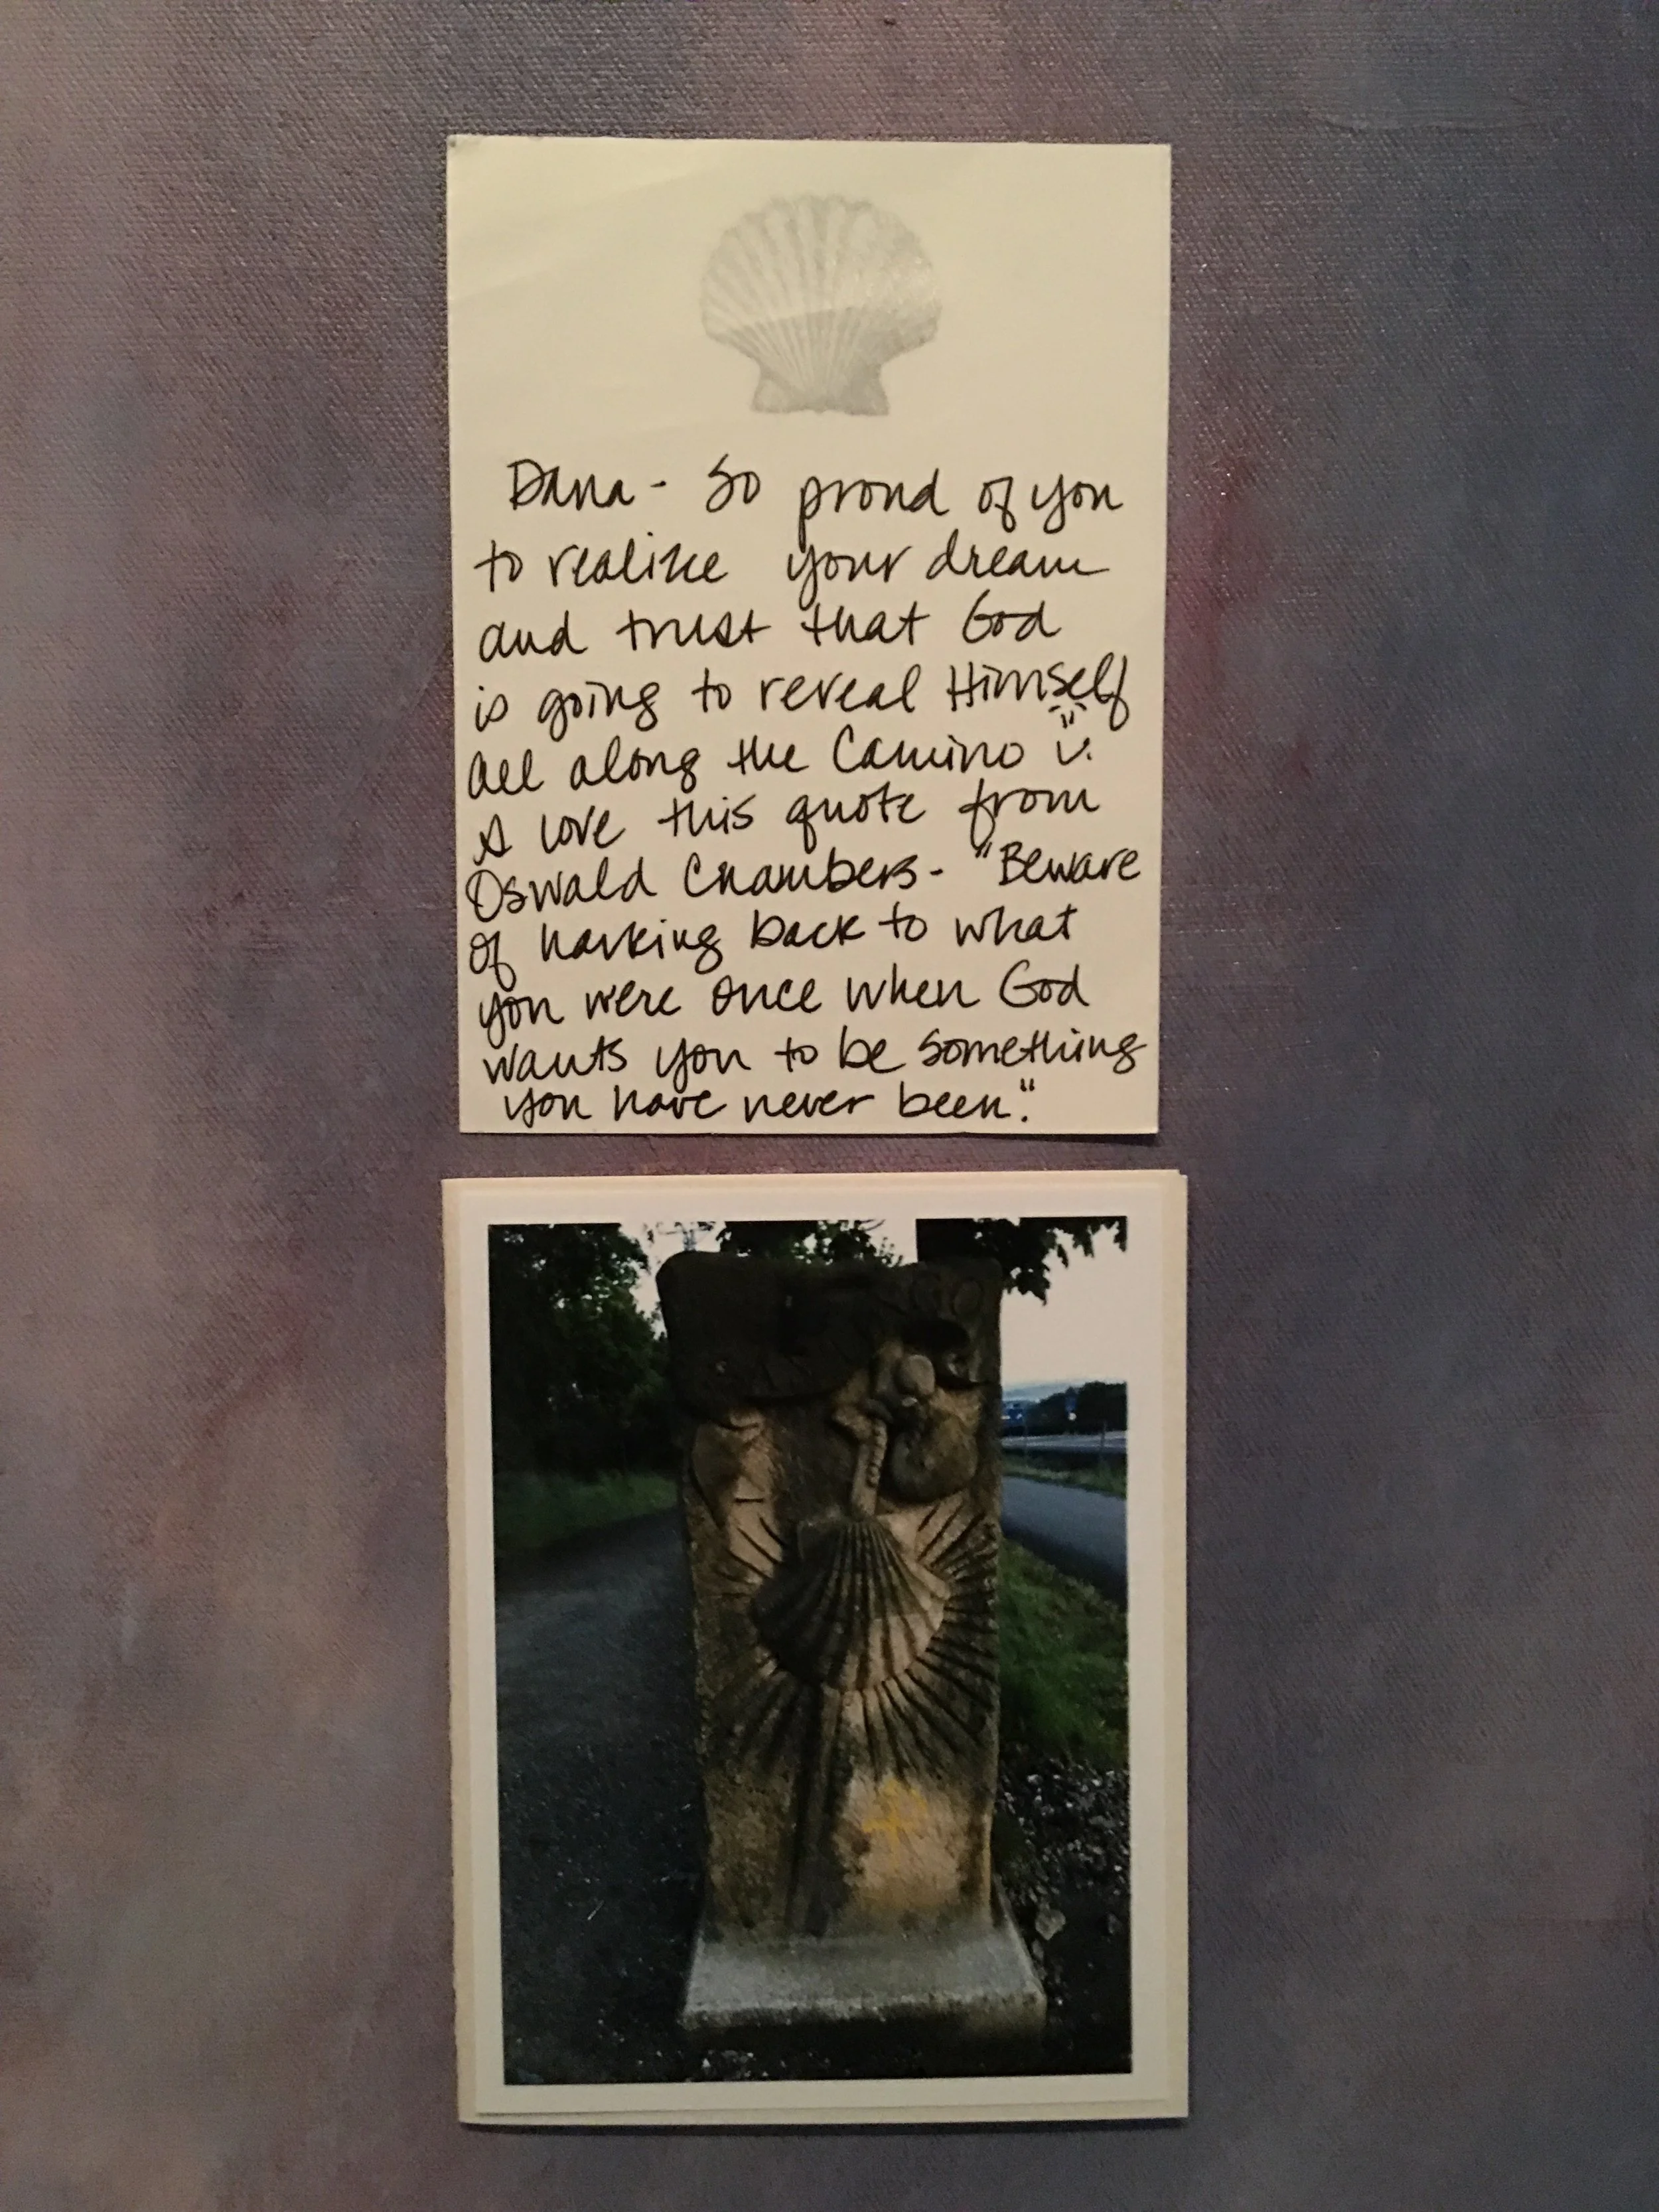 Dana - So proud of you
to realize your dream
and trust that God
is going to reveal Himself
all along the Camino
I love this quote from
Oswald Chambers - "Beware
of harking back to what
you were once when God
wants you to be something
you have never been."
GO